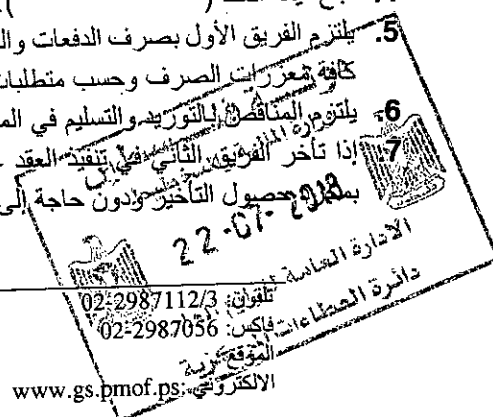 5. يلتزم الفريق الأول بصرف الدفعات
كافة معززات الصرف وحسب متطلبات
6. يلتزم المناقص بالتوريد والتسليم في
7. إذا تأخر الفريق الثاني في تنفيذ العقد
حصول التأخير ودون حاجة إلى
22-07-2018
الادارة العامة
دائرة العطاءات المركزية
تلفون: 02-2987112/3
فاكس: 02-2987056
الموقع
الالكتروني: www.gs.pmof.ps